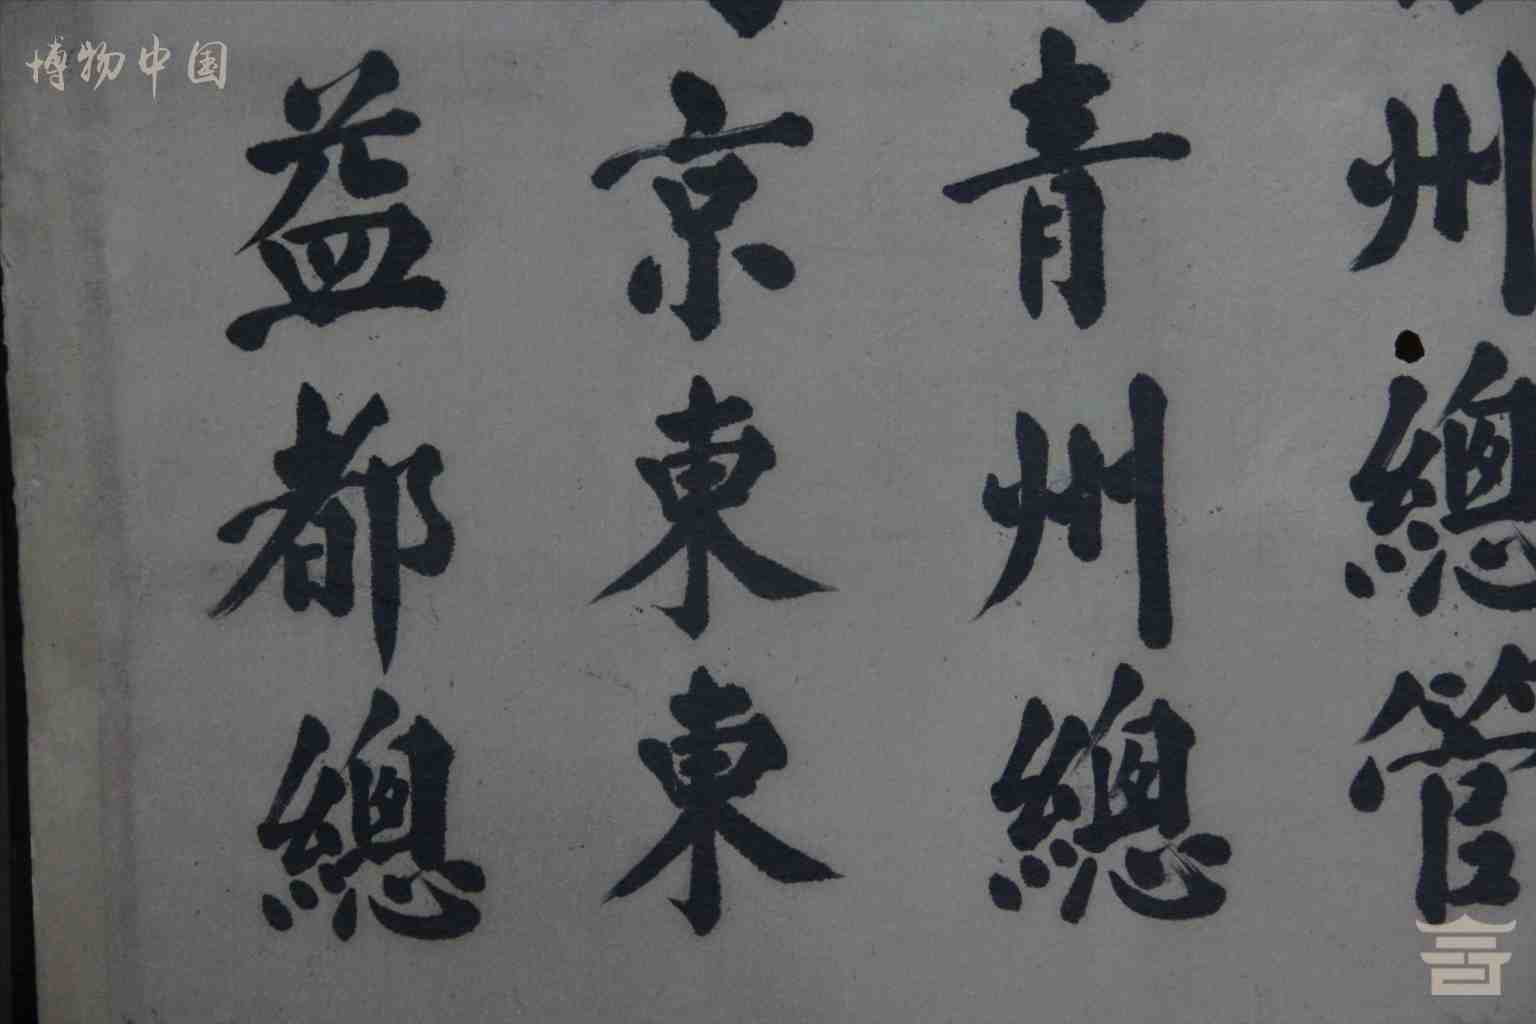 博物中国
州總管
青州總
京東東
益都總